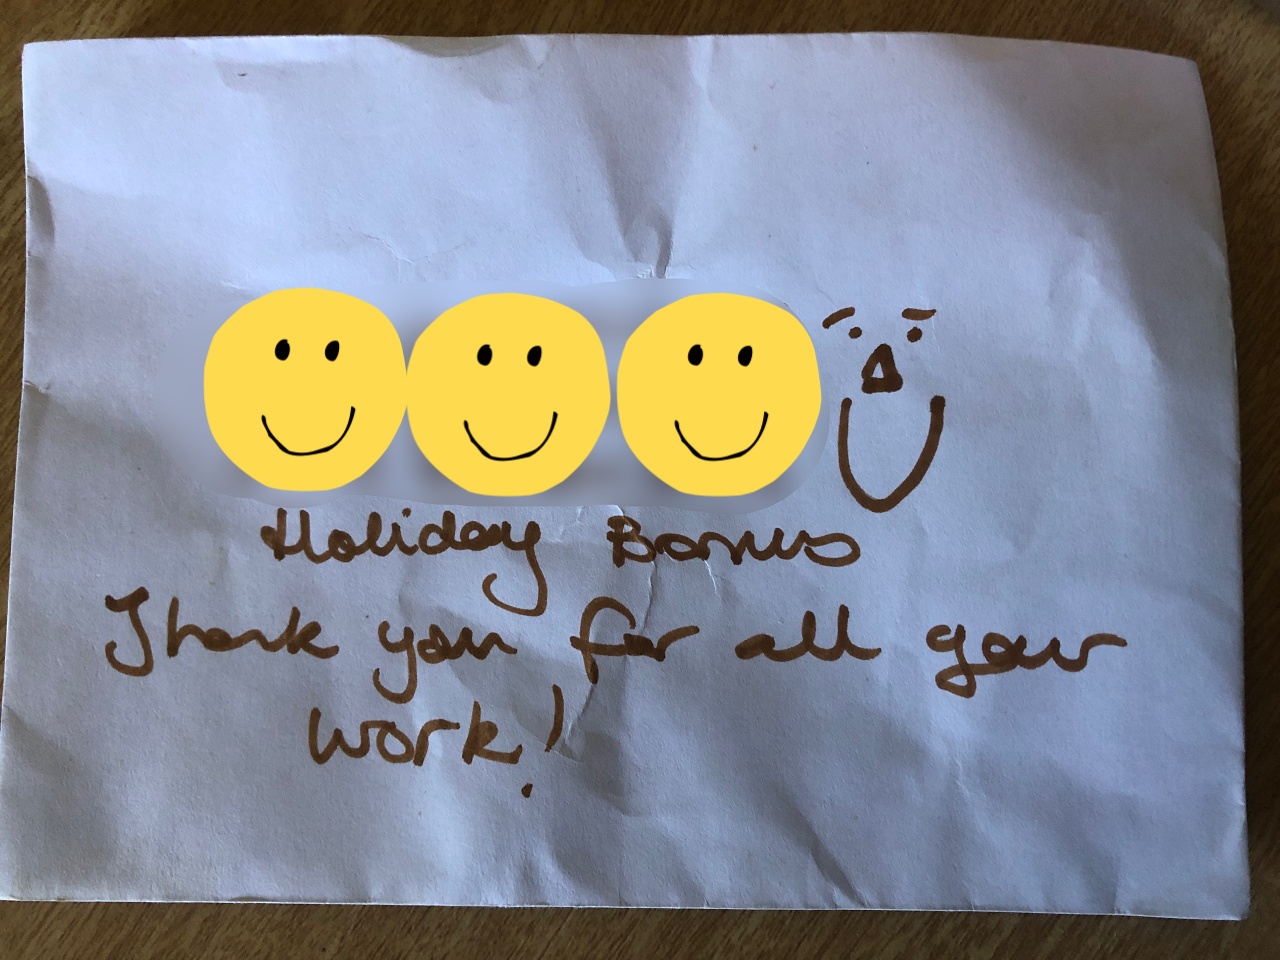 Holiday Bonus
Thank you for all your
work!